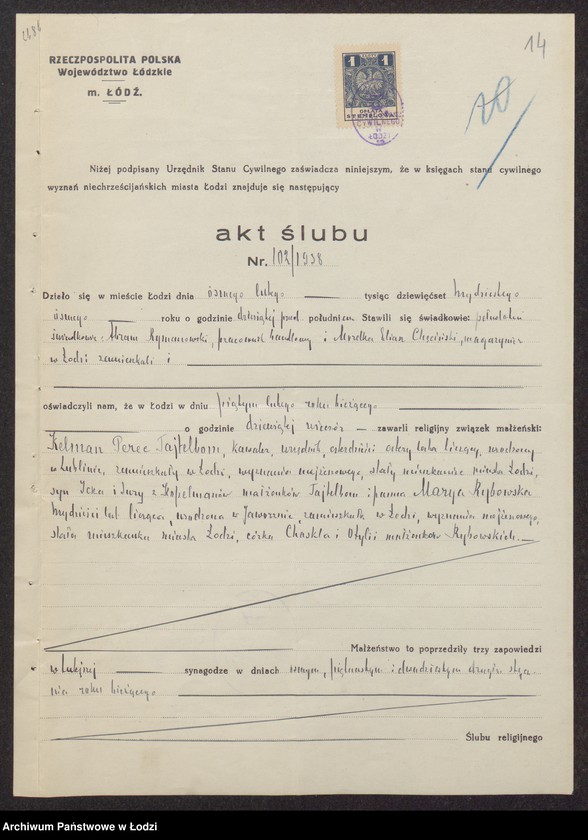 2686
14
RZECZPOSPOLITA POLSKA
Województwo Łódzkie
m. ŁÓDŹ.
1 1
OPŁATA
STEMPLOWA
CYWILNEGO
W
ŁODZI
Niżej podpisany Urzędnik Stanu Cywilnego zaświadcza niniejszym, że w księgach stanu cywilnego
wyznań niechrześcijańskich miasta Łodzi znajduje się następujący
akt ślubu
Nr. 102/1938
Działo się w mieście Łodzi dnia ósmego lutego tysiąc dziewięćset trzydziestego
ósmego roku o godzinie dziewiątej przed południem. Stawili się świadkowie: pełnoletni
świadkowie: Abram Rymanowski, pracownik handlowy i Mordka Elian Chęciński, magazynier
w Łodzi zamieszkali i
oświadczyli nam, że w Łodzi w dniu piątym lutego roku bieżącego
o godzinie dziewiątej wieczór — zawarli religijny związek małżeński:
Kelman Perec Tajtelbom, kawaler, urzędnik, czterdzieści cztery lata liczący, urodzony
w Lublinie, zamieszkały w Łodzi, wyznania mojżeszowego, stały mieszkaniec miasta Łodzi,
syn Icka i Sury z Kopelmanów małżonków Tajtelbom i panna Marya Rybowska
trzydzieści lat licząca, urodzona w Jaworznie, zamieszkała w Łodzi, wyznania mojżeszowego,
stała mieszkanka miasta Łodzi, córka Chaskla i Otylii małżonków Rybowskich.
Małżeństwo to poprzedziły trzy zapowiedzi
w tutejszej synagodze w dniach ósmym, piętnastym i dwudziestym drugim stycz-
nia roku bieżącego
Ślubu religijnego
Archiwum Państwowe w Łodzi